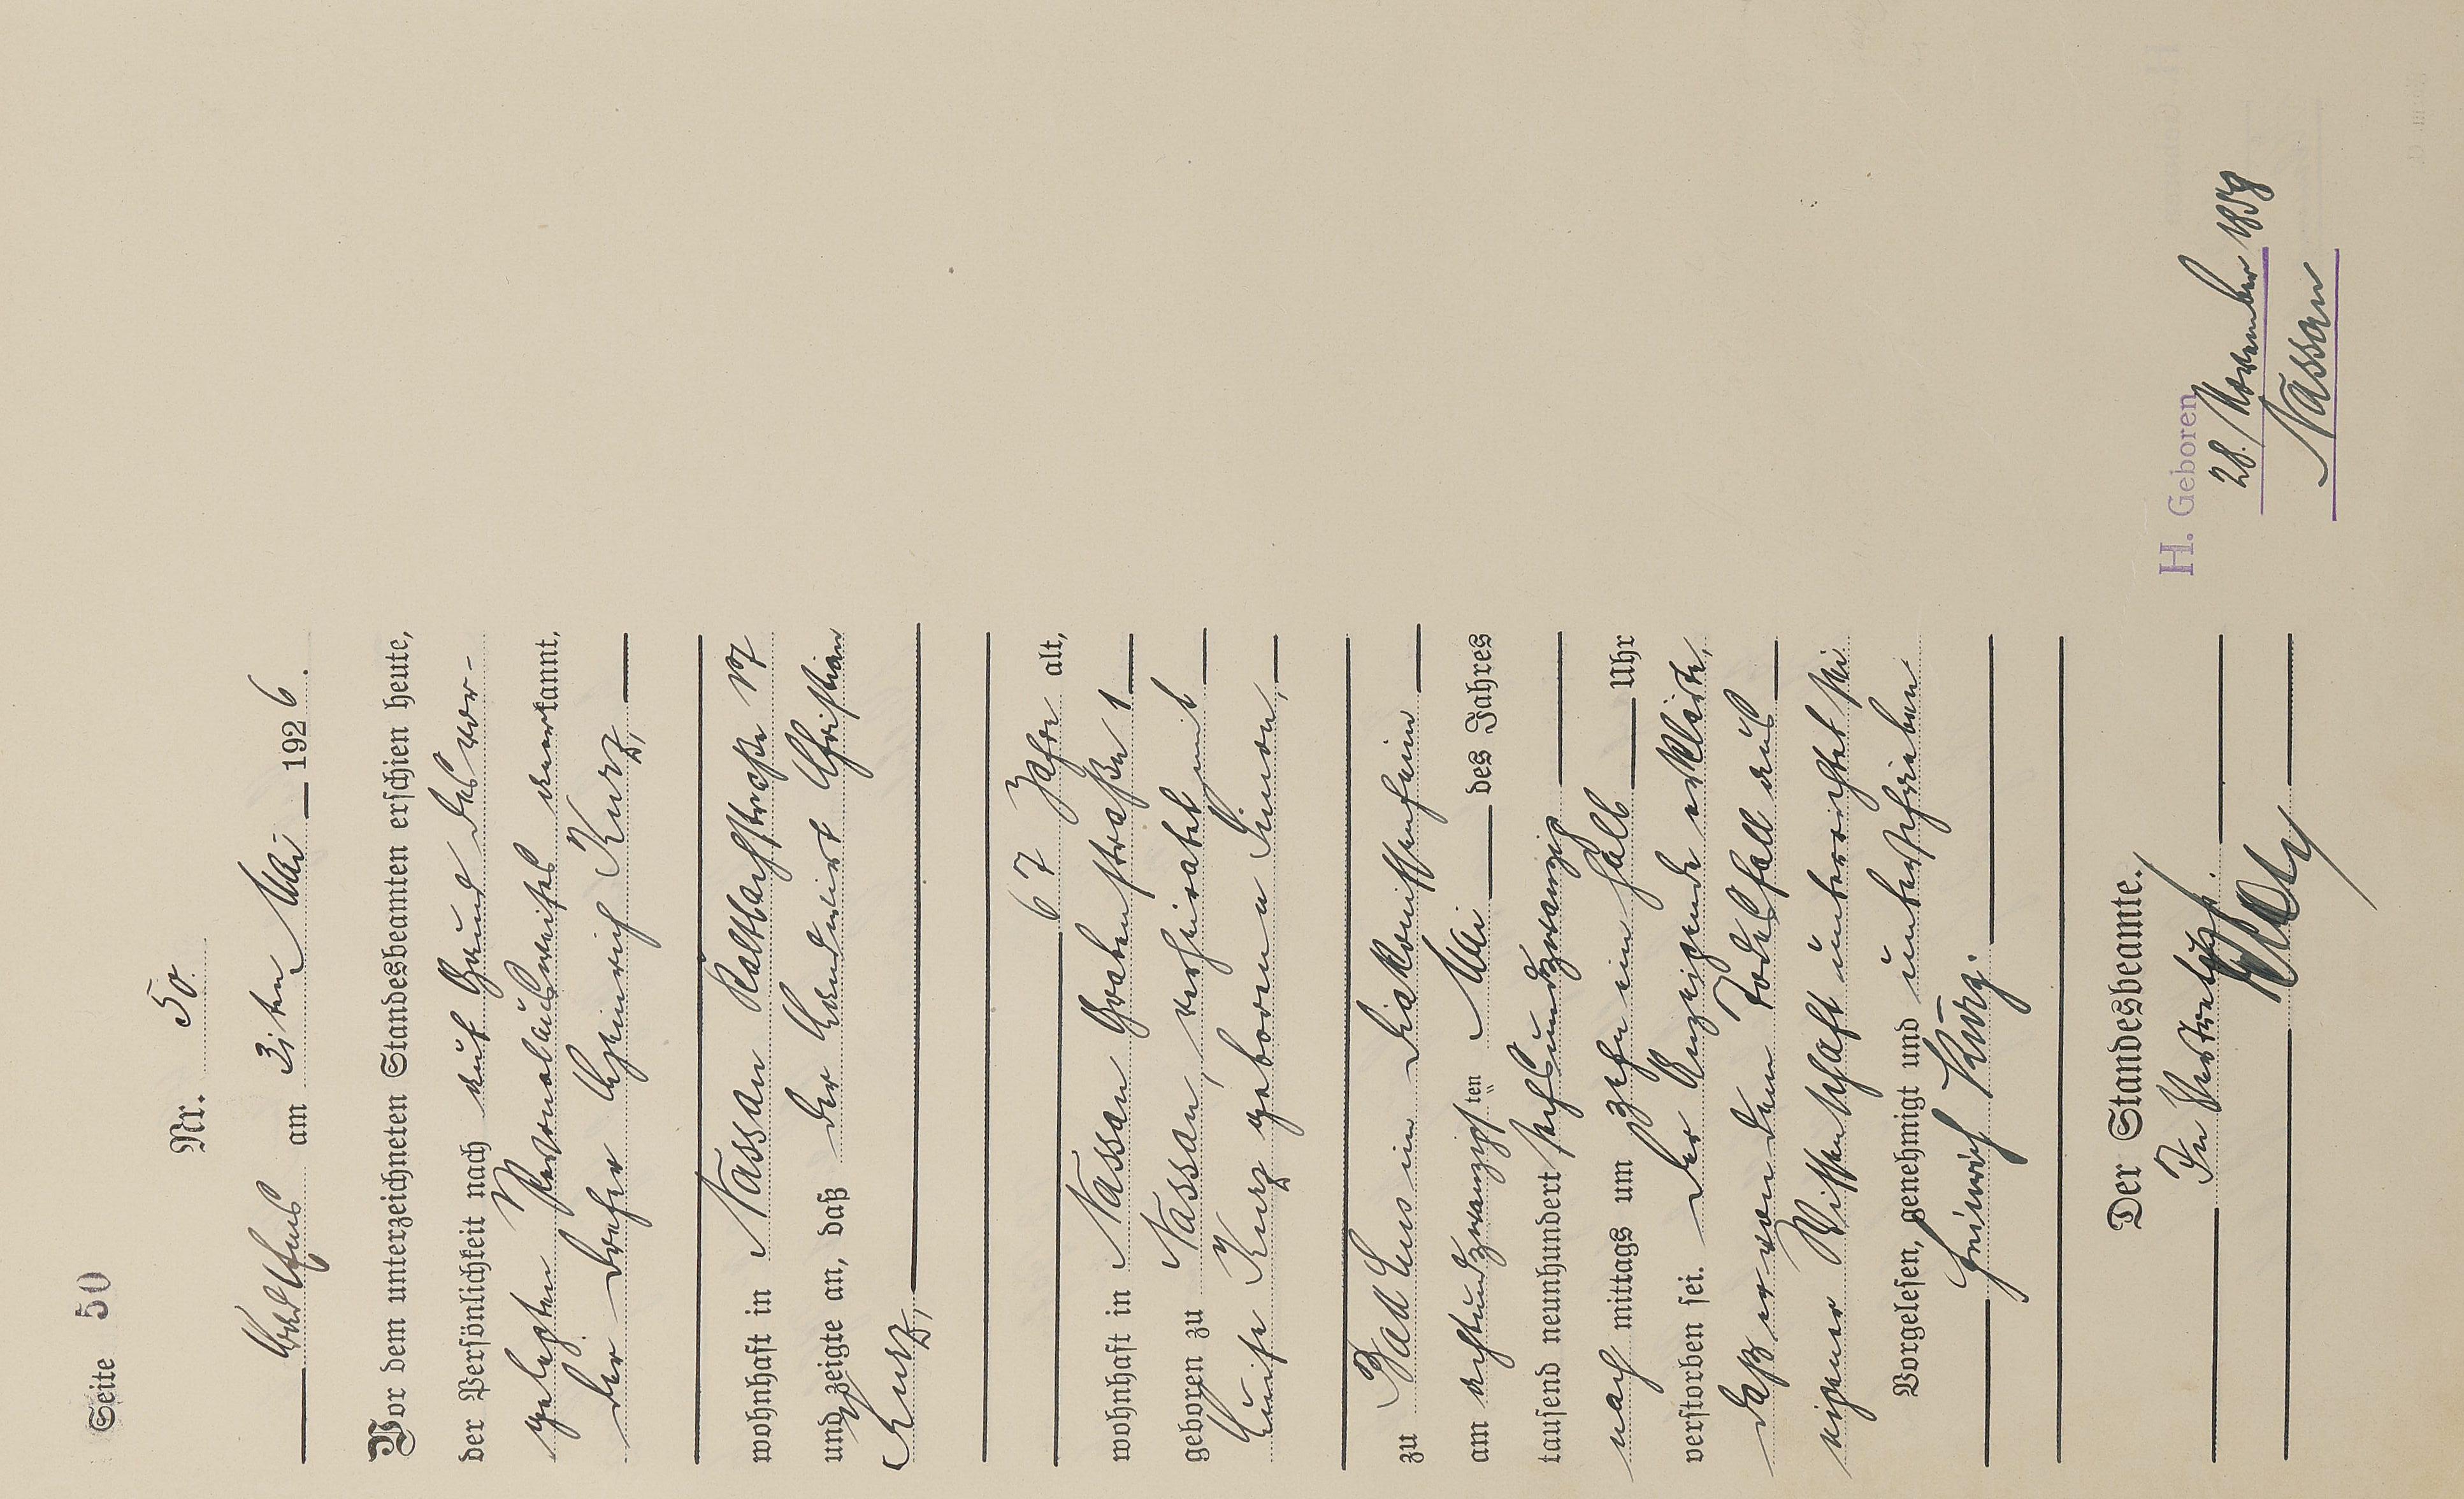 Seite 50
Nr. 50.
am 31ten Mai 1926.
Vor dem unterzeichneten Standesbeamten erschien heute,
der Persönlichkeit nach auf Grund des vor-
gelegten Personalausweises anerkannt,
der Dreher Heinrich Kurz,
wohnhaft in Nassau Kaltbachstraße 17
und zeigte an, daß der Landwirt Christian
Kurz,
67 Jahre alt,
wohnhaft in Nassau Grabenstraße 1
geboren zu Nassau, verheiratet mit
Luise Kurz geborenen
zu Bad Ems im Diakonissenheim
am achtundzwanzigsten Mai des Jahres
tausend neunhundert sechsundzwanzig
nach mittags um zehn ein halb Uhr
verstorben sei. Der Anzeigende erklärte,
daß er von dem Todesfall aus
eigener Wissenschaft unterrichtet sei.
Vorgelesen, genehmigt und unterschrieben
Heinrich Kurz.
Der Standesbeamte.
In Vertretung.
H. Geboren
28. November 1858
Nassau